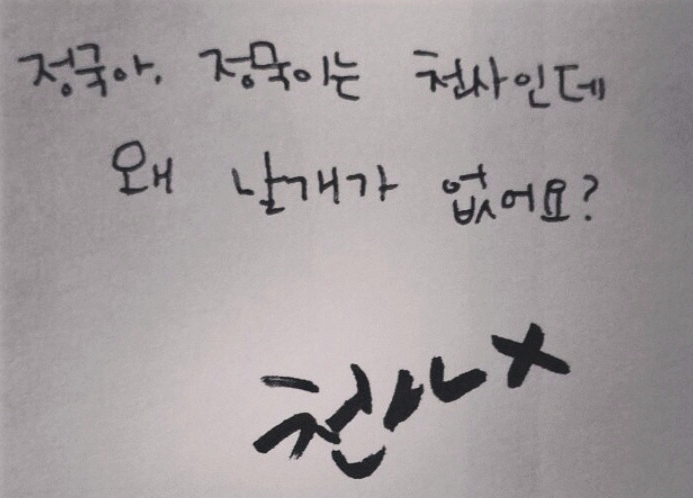 정국아. 정묵이는 천사인데
왜 날개가 없어요?
천사 X